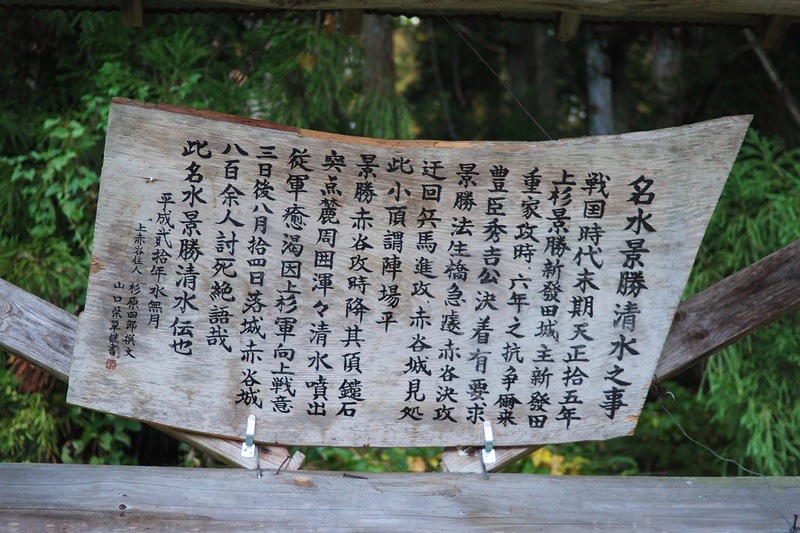 名水景勝清水之事
戦国時代末期天正拾五年
上杉景勝新發田城主新發田
重家攻時六年之抗争爾来
豊臣秀吉公決着有要求
景勝法生橋急遽赤谷決攻
迂回兵馬進攻赤谷城見処
此小頂謂陣場平
景勝赤谷攻時降其頂鐙石
突点麓周囲渾々清水噴出
従軍癒渇因上杉軍向上戦意
三日後八月拾四日落城赤谷城
八百余人討死絶語哉
此名水景勝清水伝也
平成貮拾年水無月
上赤谷住人 杉原四郎撰文
山口栄 書